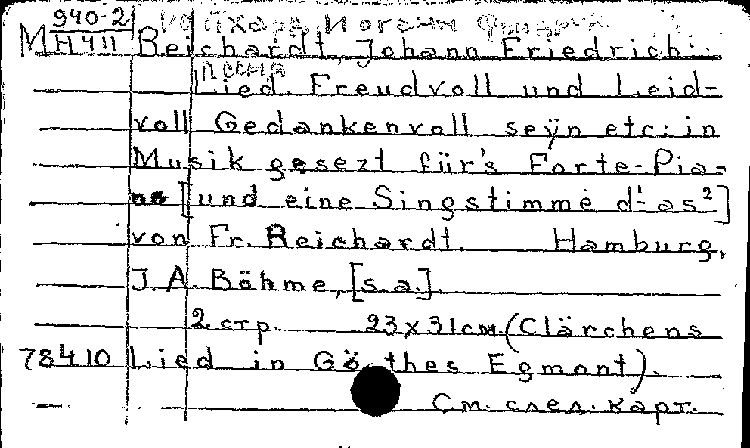 940-2 Рейхард, Иоганн Фридрих
М Н411 Reichardt, Johann Friedrich.
Песня
Lied. Freudvoll und Leid-
voll Gedankenvoll seÿn etc: in
Musik gesezt für's Forte-Pia-
no [und eine Singstimme d¹-as²]
von Fr. Reichardt. Hamburg,
J. A. Böhme, [s. a.].
2 стр. 23 x 31 см. (Clärchens
78410 Lied in Göthes Egmont).
См. след. карт.